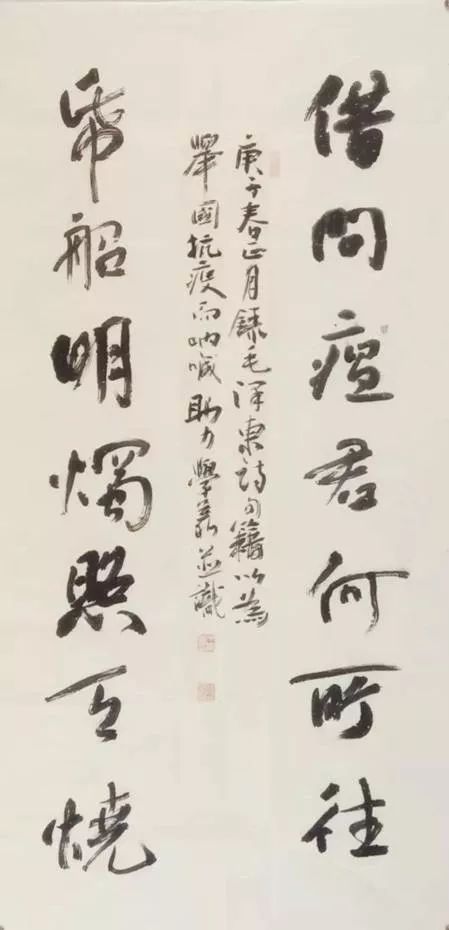 借問瘟君何所往
帋船明燭照天燒
庚子春正月録毛澤東詩句籍以為
舉國抗疫而吶喊助力學義並識